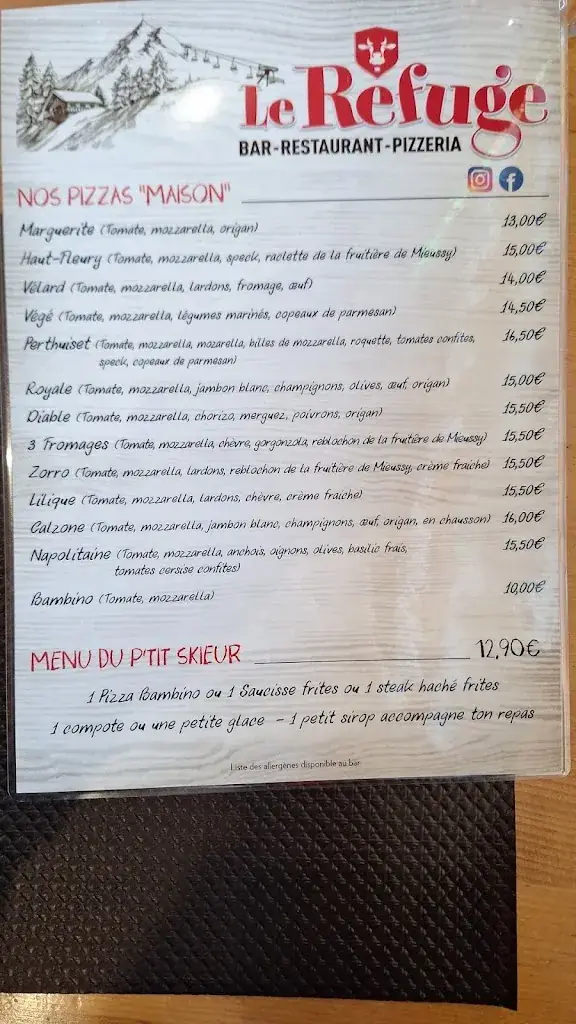 Le Refuge
BAR-RESTAURANT-PIZZERIA
NOS PIZZAS "MAISON"
Marguerite (Tomate, mozzarella, origan) 13,00€
Haut-Fleury (Tomate, mozzarella, speck, raclette de la fruitière de Mieussy) 15,00€
Vélard (Tomate, mozzarella, lardons, fromage, œuf) 14,00€
Végé (Tomate, mozzarella, légumes marinés, copeaux de parmesan) 14,50€
Perthuiset (Tomate, mozzarella, mozarella, billes de mozzarella, roquette, tomates confites, 16,50€
speck, copeaux de parmesan)
Royale (Tomate, mozzarella, jambon blanc, champignons, olives, œuf, origan) 15,00€
Diable (Tomate, mozzarella, chorizo, merguez, poivrons, origan) 15,50€
3 Fromages (Tomate, mozzarella, chèvre, gorgonzola, reblochon de la fruitière de Mieussy) 15,50€
Zorro (Tomate, mozzarella, lardons, reblochon de la fruitière de Mieussy, crème fraiche) 15,50€
Lilique (Tomate, mozzarella, lardons, chèvre, crème fraiche) 15,50€
Calzone (Tomate, mozzarella, jambon blanc, champignons, œuf, origan, en chausson) 16,00€
Napolitaine (Tomate, mozzarella, anchois, oignons, olives, basilic frais, 15,50€
tomates cersise confites)
Bambino (Tomate, mozzarella) 10,00€
MENU DU P'TIT SKIEUR 12,90€
1 Pizza Bambino ou 1 Saucisse frites ou 1 steak haché frites
1 compote ou une petite glace - 1 petit sirop accompagne ton repas
Liste des allergènes disponible au bar